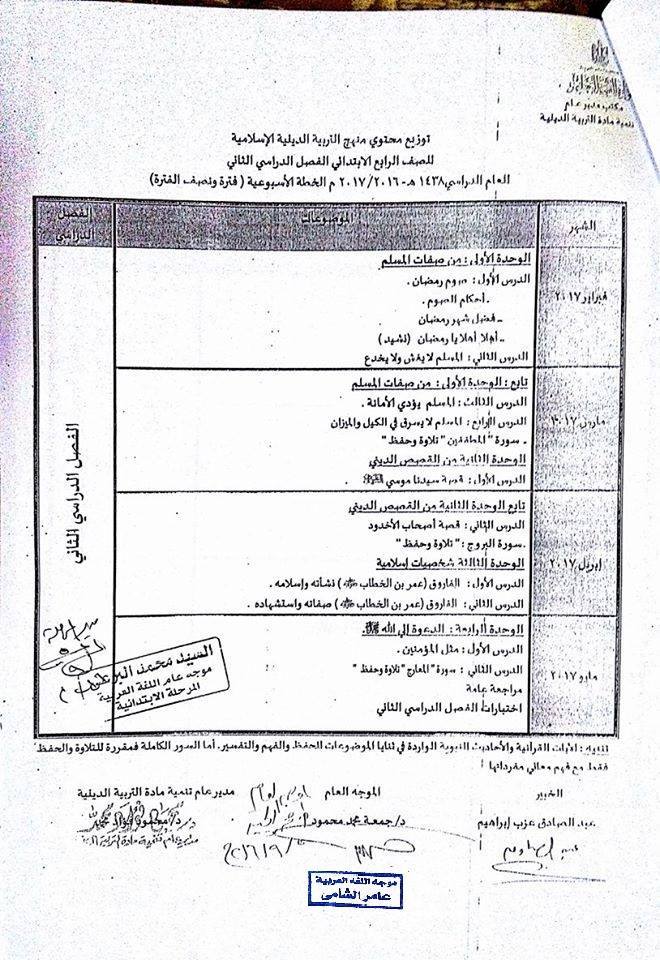 مكتب مدير عام
تنمية مادة التربية الدينية
توزيع محتوي منهج التربية الدينية الإسلامية
للصف الرابع الابتدائي الفصل الدراسي الثاني
العام الدراسي ١٤٣٨ هـ - ٢٠١٧/٢٠١٦ م الخطة الأسبوعية ( فترة ونصف الفترة )
الشهر
الموضوعات
الفصل الدراسي
فبراير ٢٠١٧
الوحدة الأولى : من صفات المسلم
الدرس الأول : صوم رمضان .
. أحكام الصوم .
- فضل شهر رمضان
- أهلا أهلا يا رمضان (نشيد)
الدرس الثاني : المسلم لا يغش ولا يخدع
مارس ٢٠١٧
تابع : الوحدة الأولى : من صفات المسلم
الدرس الثالث : المسلم يؤدي الأمانة .
الدرس الرابع : المسلم لا يسرق في الكيل والميزان
. سورة " المطففين " تلاوة وحفظ "
الوحدة الثانية من القصص الديني
الدرس الأول : قصة سيدنا موسي
ابريل ٢٠١٧
تابع الوحدة الثانية من القصص الديني
الدرس الثاني : قصة أصحاب الأخدود
. سورة البروج : " تلاوة وحفظ "
الوحدة الثالثة شخصيات إسلامية
الدرس الأول : الفاروق (عمر بن الخطاب ) نشأته وإسلامه .
الدرس الثاني : الفاروق (عمر بن الخطاب ) صفاته واستشهاده .
مايو ٢٠١٧
الوحدة الرابعة : الدعوة إلى الله
الدرس الأول : مثل المؤمنين .
الدرس الثاني : سورة " المعارج " تلاوة وحفظ "
مراجعة عامة
اختبارات الفصل الدراسي الثاني
الفصل الدراسي الثاني
السيد محمد
موجه عام اللغة العربية
المرحلة الابتدائية
تنبيه : الآيات القرآنية والأحاديث النبوية الواردة في ثنايا الموضوعات للحفظ والفهم والتفسير. أما السور الكاملة فمقررة للتلاوة والحفظ
فقط مع فهم معاني مفرداتها
الخبير
الموجه العام
مدير عام تنمية مادة التربية الدينية
عبد الصادق عزب إبراهيم
د/ جمعة محمد محمود
موجه اللغة العربية
عامر الشامى